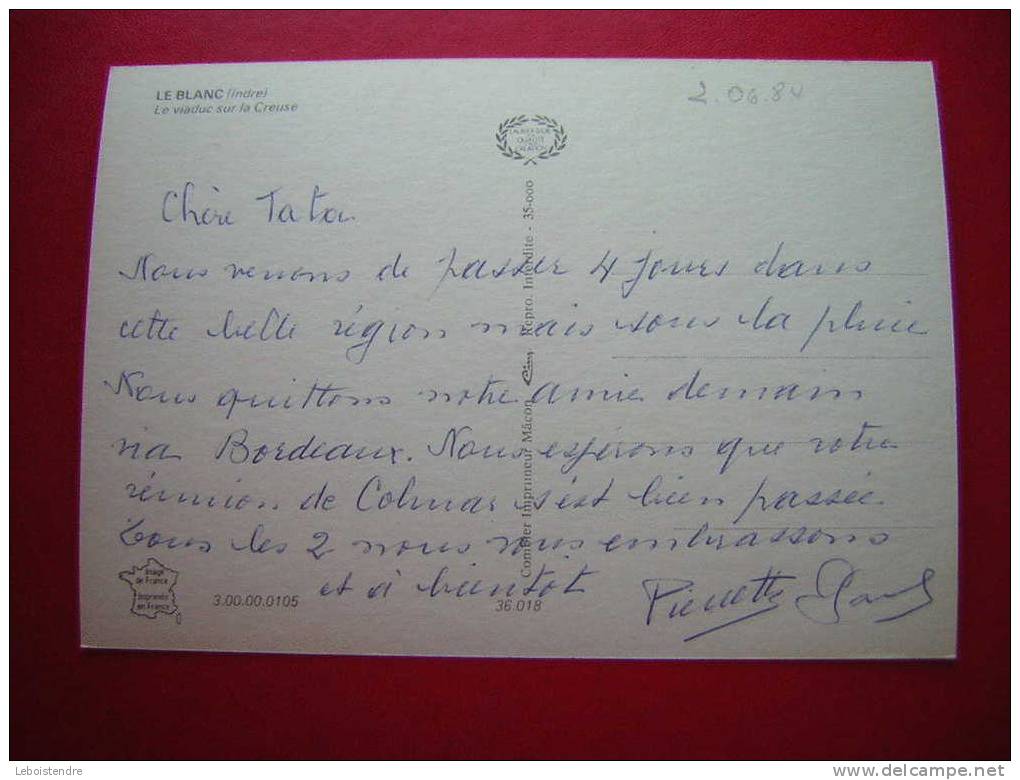 LE BLANC (Indre)
Le viaduc sur la Creuse
2.06.84
Chère Tata
Nous venons de passer 4 jours dans
cette belle région mais sous la pluie
Nous quittons notre amie demain
via Bordeaux. Nous espérons que votre
réunion de Colmar s'est bien passée
Tous les 2 nous vous embrassons
et à bientot
Pierrette
Combier Imprimeur Mâcon Cim Repro. Interdite - 35-000
Image
de France
Imprimée
en France
3.00.00.0105
36.018
Leboistendre
delcampe.net